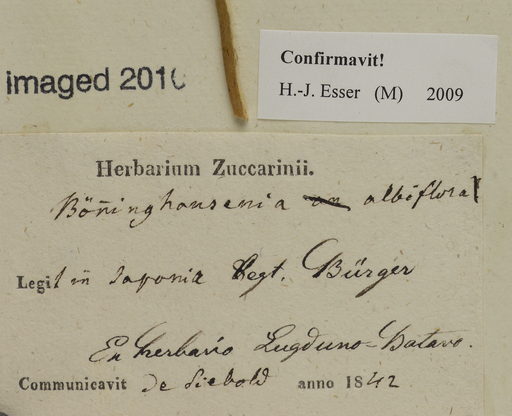 imaged 2010
Confirmavit!
H.-J. Esser (M) 2009
Herbarium Zuccarinii.
Bönninghausenia albiflora
Legit in Japonia legt. Bürger
Ex herbario Lugduno-Batavo.
Communicavit de Siebold anno 1842